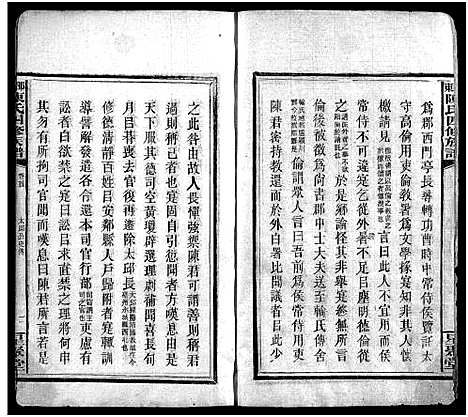 為郡西門亭長尋轉功曹時中常侍侯覽託太
守高倫用吏倫教署為文學掾寔知非其人懷
檄請見
言曰此人不宜用而侯
常侍不可違寔乞從外署不足以塵明德
倫從之
於是鄉論怪其非舉寔終無所言
倫後被徵為尚書郡中士大夫送至輪氏傳舍
倫謂
曰吾前為侯常侍用吏
陳君密持教還而於外白署比聞議者以此少
之此咎由故人畏憚強禦陳君可謂善則稱君
過則稱己者也寔固自引愆聞者方歎息由是
天下服其德司空黃瓊辟選理劇補聞喜長旬
月以期喪去官復再遷除太邱長
修德清靜百姓以安鄰縣人戶歸附者寔輒訓
導譬解發遣各令還本司官行部
吏慮有
訟者白欲禁之寔曰訟以求直禁之理將何申
其勿有所拘司官聞而歎息曰陳君所言若是
陳氏四修族譜
卷首